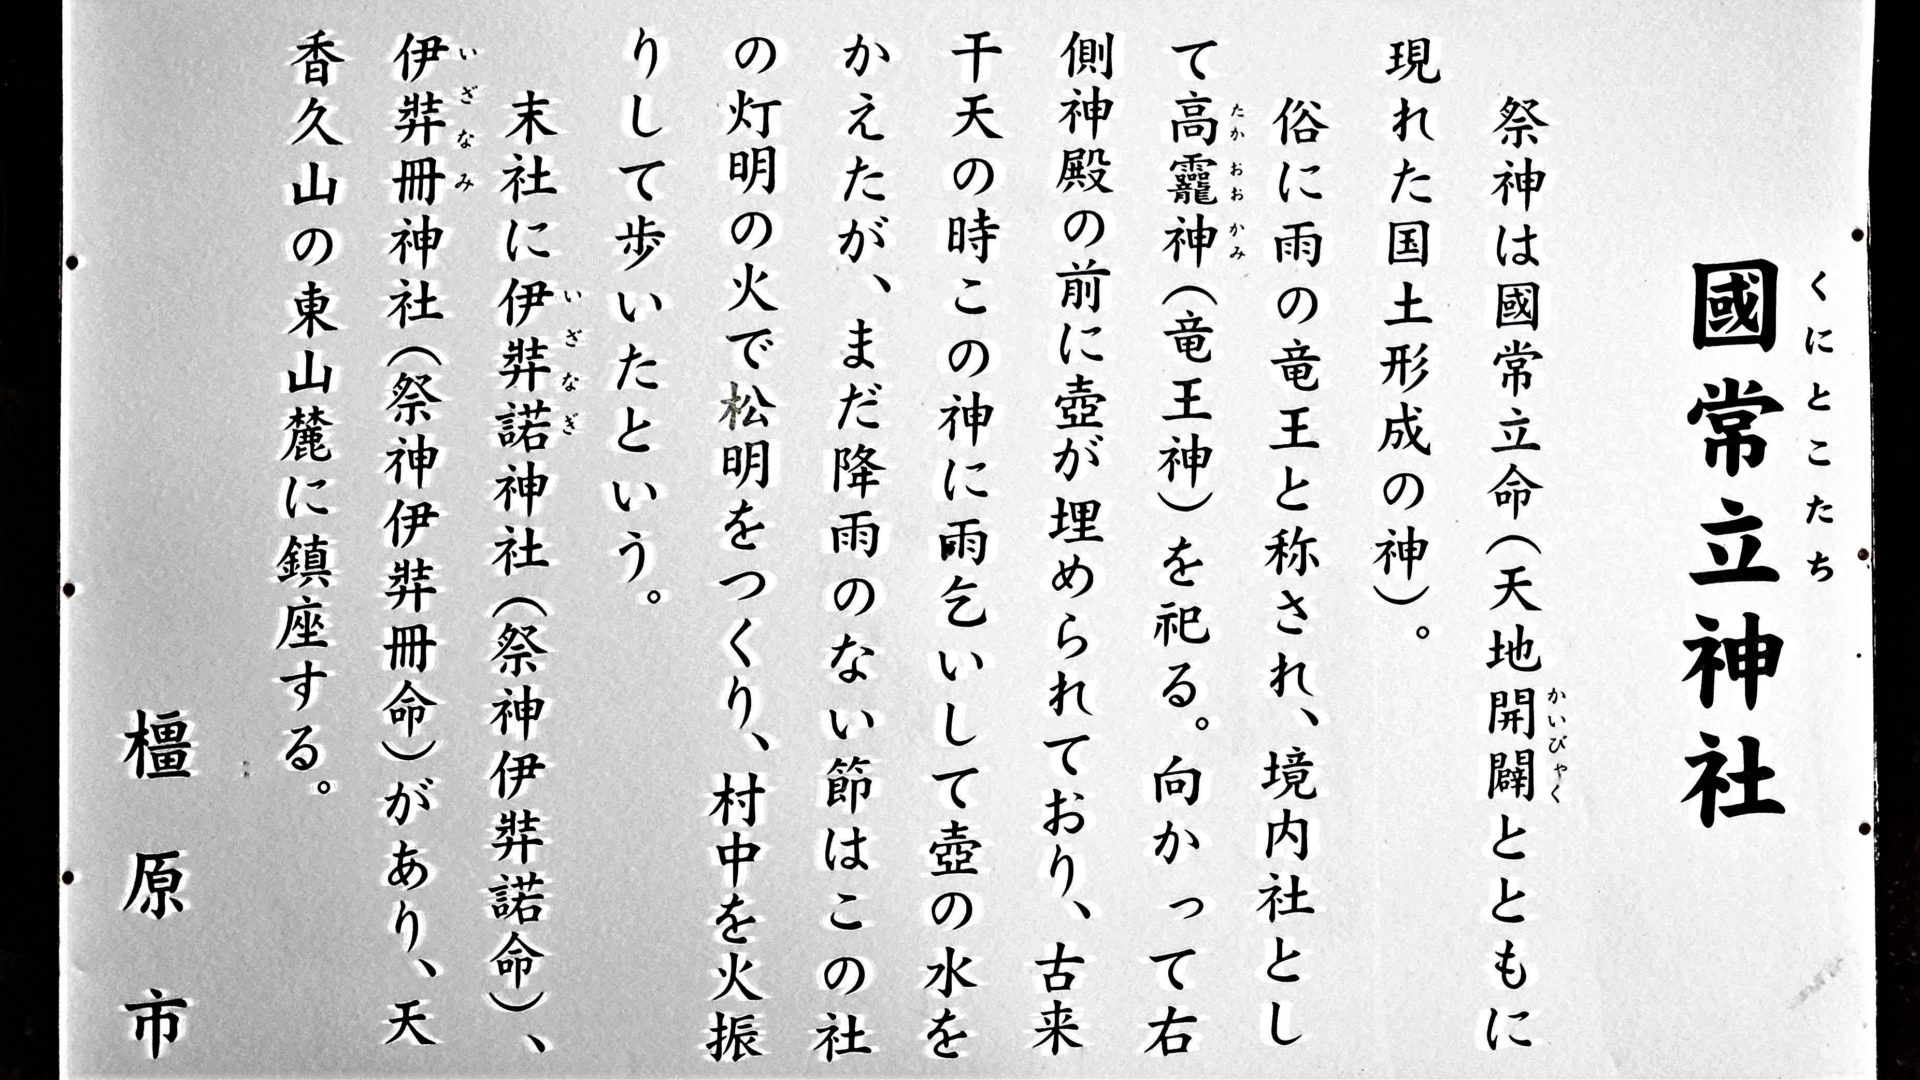 國常立神社
くにとこたち
祭神は國常立命（天地開闢とともに
かいびゃく
現れた国土形成の神）。
俗に雨の竜王と称され、境内社とし
て高龗神（竜王神）を祀る。向かって右
たかおおかみ
側神殿の前に壺が埋められており、古来
干天の時この神に雨乞いして壺の水を
かえたが、まだ降雨のない節はこの社
の灯明の火で松明をつくり、村中を火振
りして歩いたという。
末社に伊弉諾神社（祭神伊弉諾命）、
いざなぎ
伊弉冊神社（祭神伊弉冊命）があり、天
いざなみ
香久山の東山麓に鎮座する。
橿原市